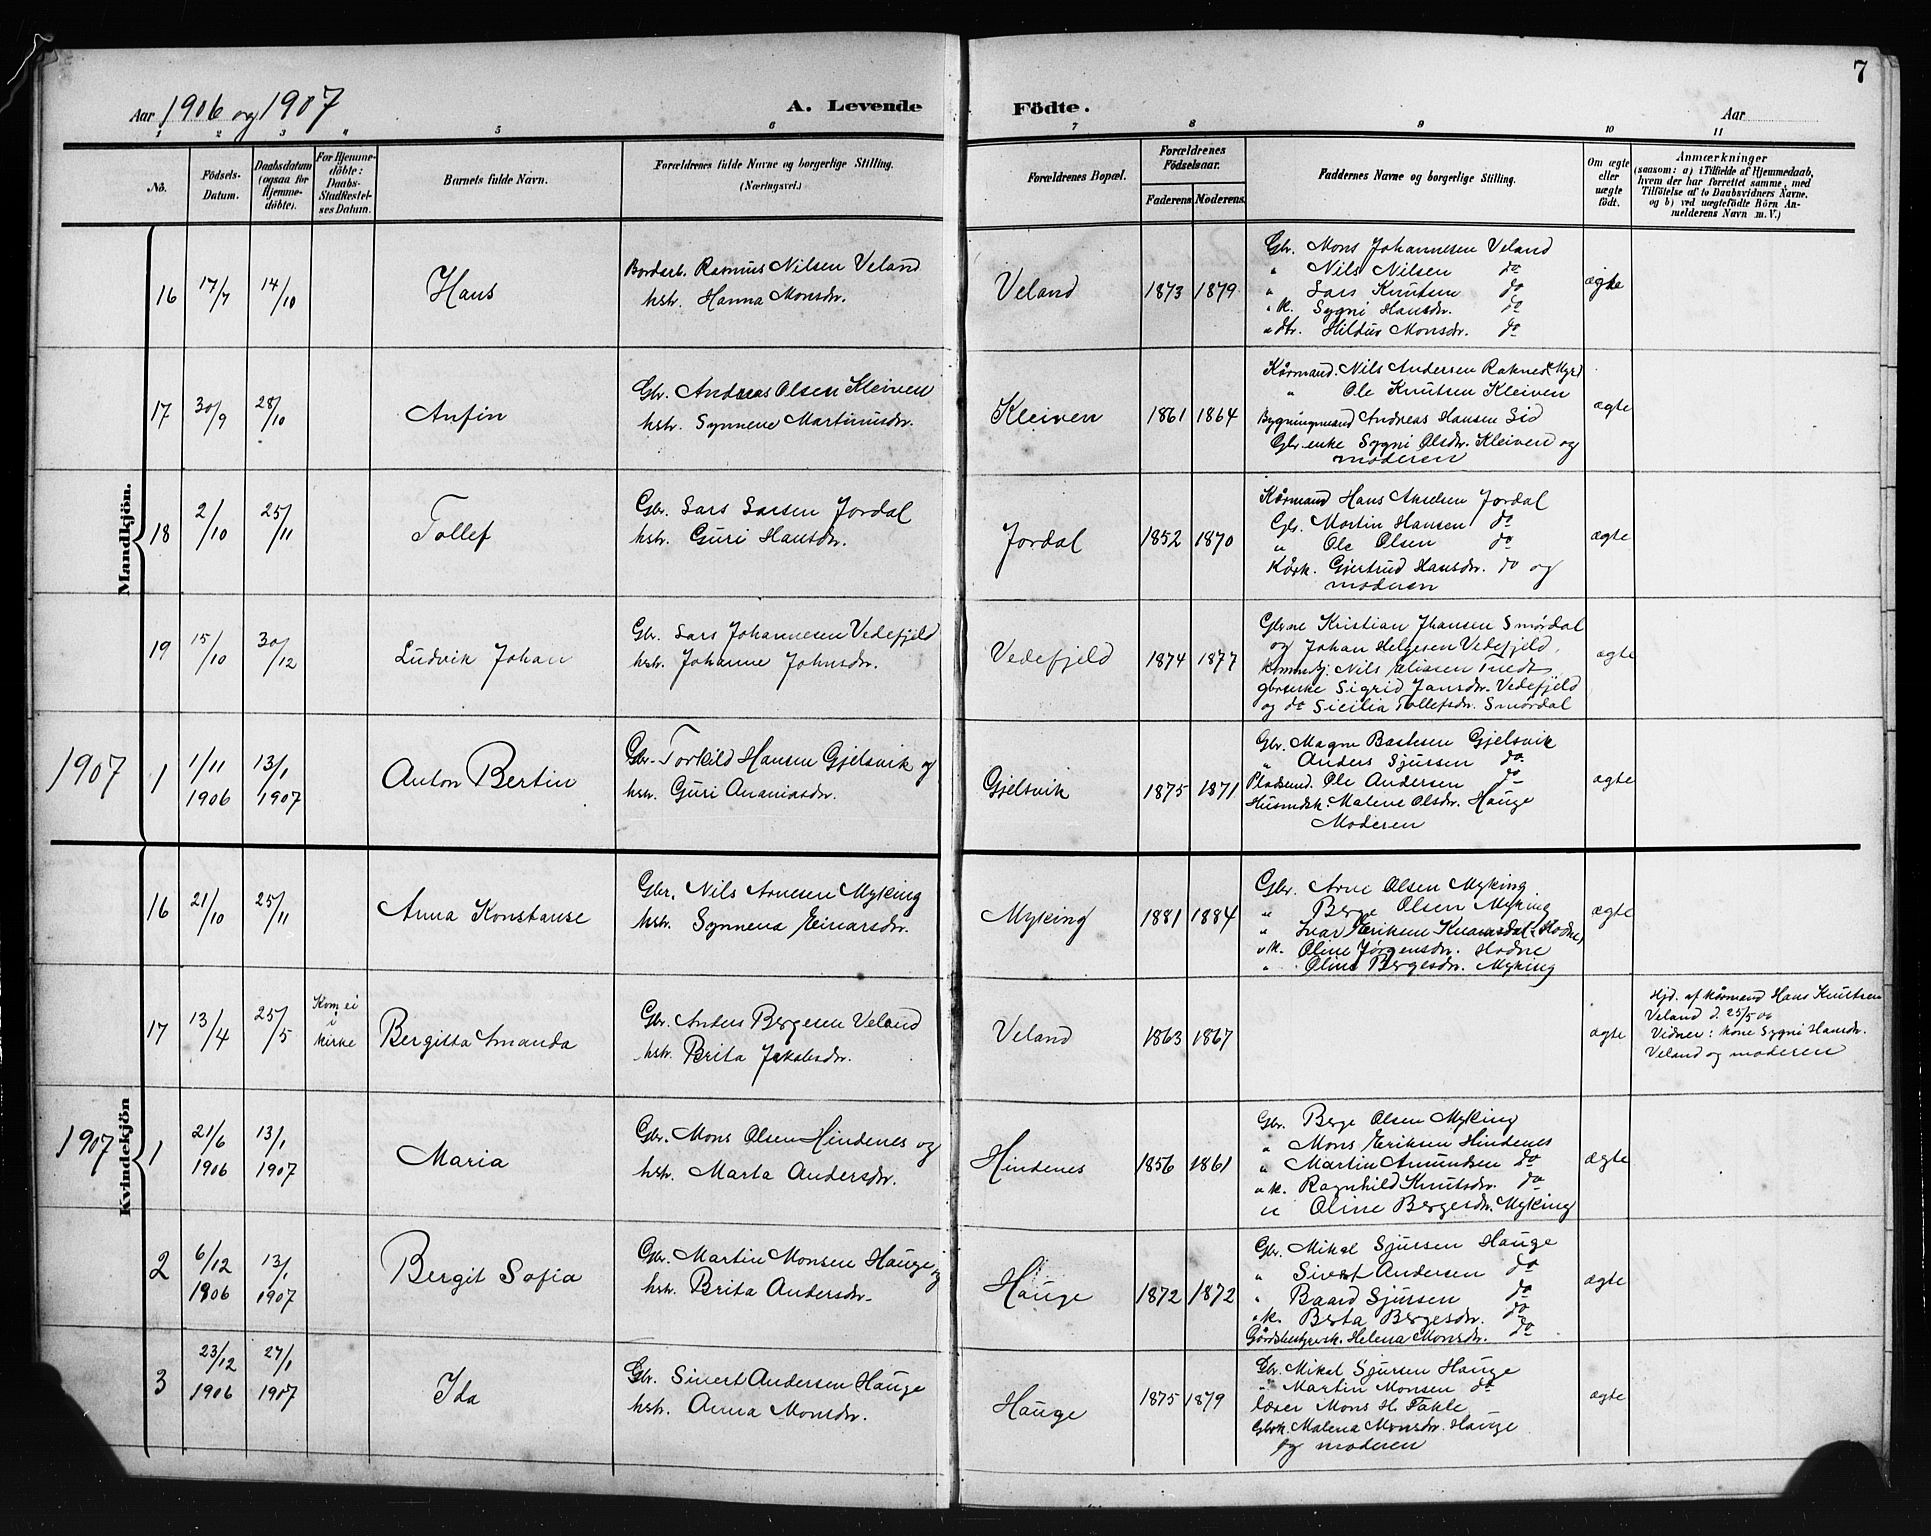 7
Aar 1906 og 1907
A. Levende Födte.
Aar
1 2 3 4 5 6 7 8 9 10 11
No.
Födsels-Datum.
Daabsdatum (ogsaa for Hjemme-döbte).
For Hjemme-döbte: Daabs-Stadfæstel-ses Datum.
Barnets fulde Navn.
Forældrenes fulde Navne og borgerlige Stilling. (Næringsvei.)
Forældrenes Bopæl.
Forældrenes Födselsaar.
Faderens Moderens
Faddernes Navne og borgerlige Stilling.
Om ægte eller uægte födt.
Anmærkninger
(saasom: a) i Tilfælde af Hjemmedaab,
hvem der har forrettet samme, med
Tilföielse af to Daabsvidners Navne,
og b) ved uægtefödte Börn An-
melderens Navn m. V.)
Mandkjön.
16 17/7 14/10 Hans
Bordarb. Rasmus Nilsen Veland
hstr. Hanna Monsdr.
Veland 1873 1879
Gbr. Mons Johannesen Veland
" Nils Nilsen do
" Lars Knutsen do
" k. Sygni Hansdr. do
" dtr. Hildur Monsdr. do
ægte
17 30/9 28/10 Anfin
Gbr. Andreas Olsen Kleiven
hstr. Synneve Martinusdr.
Kleiven 1861 1864
Kårmand. Nils Andersen Raknes (Myr)
" Ole Knutsen Kleiven
Bygningsmand Andreas Hansen Lid
Gbr. enke Sygni Olsdr. Kleiven og
moderen
ægte
18 2/10 25/11 Tollef
Gbr. Lars Larsen Jordal
hstr. Guri Hansdr.
Jordal 1852 1870
Kårmand Hans Akselsen Jordal
Gbr. Martin Hansen do
" Ole Olsen do
Kårk. Gjertrud Hansdr. do og
moderen
ægte
19 15/10 30/12 Ludvik Johan
Gbr. Lars Johannesen Vedefjeld
hstr. Johanne Johnsdr.
Vedefjeld 1874 1877
Gbrne Kristian Jhansen Smördal
og Johan Helgesen Vedefjeld,
Nils Eliasen Tvedt
gbrsenke Sigrid Jansdr. Vedefjeld
og do Sicilia Tollefsdr. Smördal
ægte
1907
1 1/11 1906 13/1 1907 Anton Bertin
Gbr. Torkild Hansen Gjelsvik og
hstr. Guri Ananiasdr.
Gjelsvik 1875 1871
Gbr. Magne Bastesen Gjelsvik
" Anders Sjursen do
Pladsmd. Ole Andersen do
Husmdsk. Malene Olsdr. Hauge
Moderen
ægte
Kvindekjön
16 21/10 25/11 Anna Konstanse
Gbr. Nils Arnesen Myking
hstr. Synneva Einarsdr.
Myking 1881 1884
Gbr. Arne Olsen Myking
" Berge Olsen Myking
" Ivar Eriksen Kvamsdal (Hodne)
" k. Oline Jørgensdr. Hodne
" Oline Bergesdr. Myking
ægte
17 13/4 25/5 Kom ei i kirke Bergitta Amanda
Gbr. Anders Bergesen Veland
hstr. Brita Jakobsdr.
Veland 1863 1867
ægte
Hjd. af kårmand Hans Knutsen
Veland d. 25/5 06
Vidner: kone Sygni Hansdr.
Veland og moderen
1907
1 21/6 1906 13/1 1907 Maria
Gbr. Mons Olsen Hindenes og
hstr. Marta Andersdr.
Hindenes 1856 1861
Gbr. Berge Olsen Myking
" Mons Eriksen Hindenes
" Martin Amundsen do
" k. Ragnhild Knutsdr. do
" Oline Bergesdr. Myking
ægte
2 6/12 1906 13/1 1907 Bergit Sofia
Gbr. Martin Monsen Hauge og
hstr. Brita Andersdr.
Hauge 1872 1872
Gbr. Mikal Sjursen Hauge
" Sivert Andersen do
" Baard Sjursen do
" k. Berta Bergesdr. do
Gårdsbestyrersk. Helena Monsdr. do
ægte
3 23/12 1906 27/1 1907 Ida
Gbr. Sivert Andersen Hauge
hstr. Anna Monsdr.
Hauge 1875 1879
Gbr. Mikal Sjursen Hauge
" Martin Monsen do
lærer Mons H. Takle
Gbrk. Malena Monsdr. Hauge
og moderen
ægte